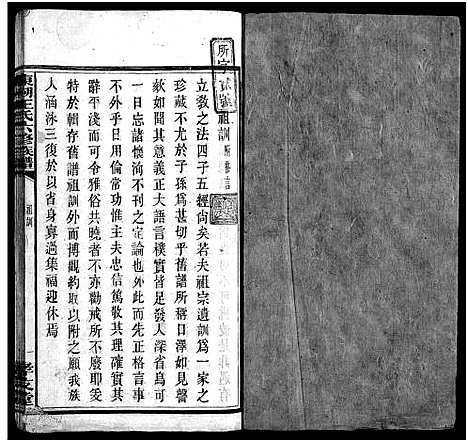 祖訓
立教之法四子五經尙矣若夫祖宗遺訓爲一家之
珍藏不尤於子孫爲甚切乎舊譜所稱口澤如見謦
欬如聞其意義正大語言樸實皆足發人深省烏可
一日忘諸懷洵不刊之定論也外此而先正格言事
不外乎日用倫常功惟主夫忠信篤敬其理確實其
辭平淺而可令雅俗共曉者不亦勸戒所不廢耶爰
特於輯存舊譜祖訓外而博觀約取以附之願我族
人涵泳三復於以省身寡過集福迎休焉
王氏六修族譜
祖訓
一